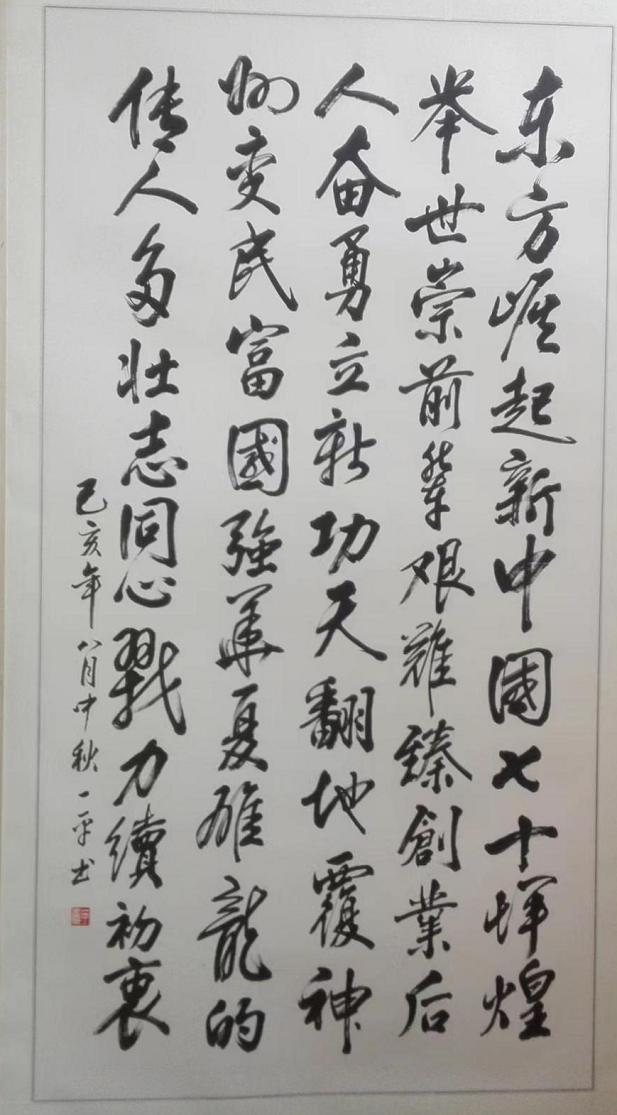 东方崛起新中國七十辉煌
举世崇前辈艰難臻創業后
人奋勇立新功天翻地覆神
州变民富國強华夏雄龍的
传人多壮志同心戮力續初衷
己亥年八月中秋一平书